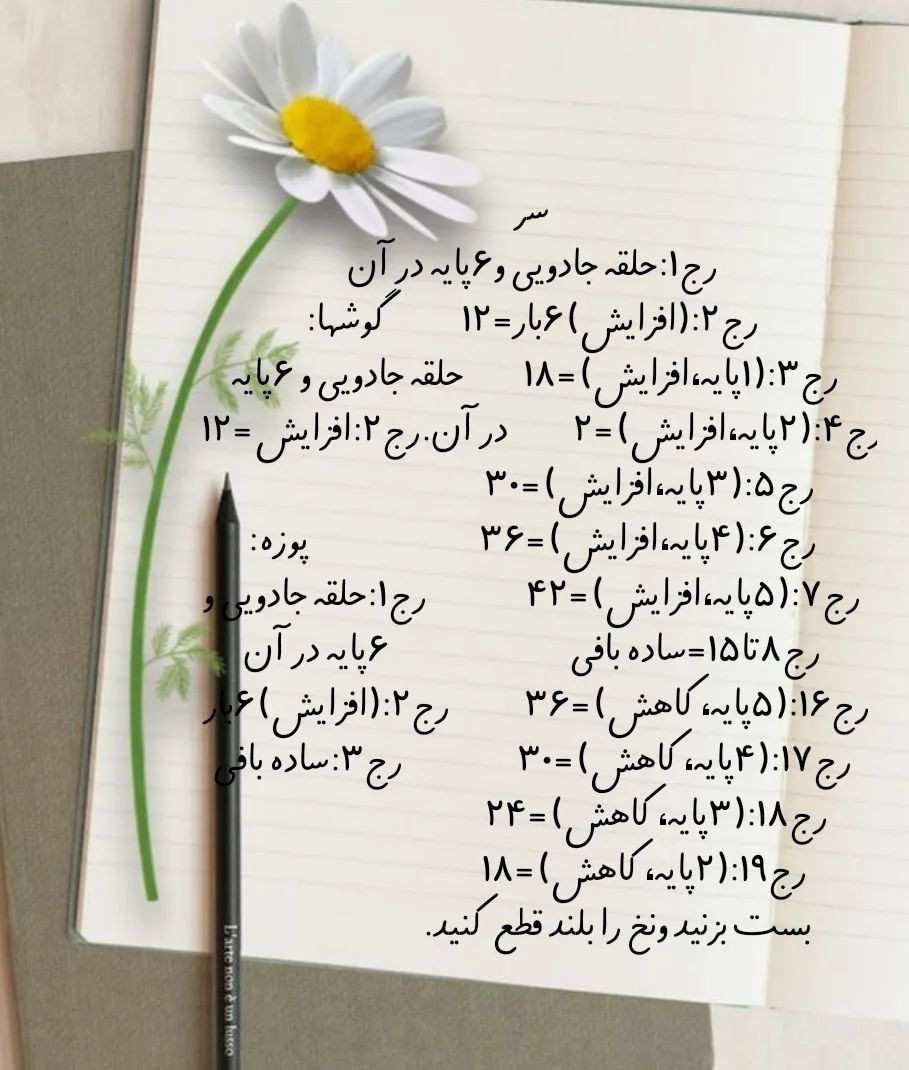 سر
رج۱:حلقه جادویی و۶پایه در آن
رج۲:(افزایش)۶بار=۱۲
رج۳:(۱پایه،افزایش)=۱۸
رج۴:(۲پایه،افزایش)=۲
رج۵:(۳پایه،افزایش)=۳۰
رج۶:(۴پایه،افزایش)=۳۶
رج۷:(۵پایه،افزایش)=۴۲
رج۸تا۱۵=ساده بافی
رج۱۶:(۵پایه، کاهش)=۳۶
رج۱۷:(۴پایه، کاهش)=۳۰
رج۱۸:(۳پایه، کاهش)=۲۴
رج۱۹:(۲پایه، کاهش)=۱۸
بست بزنید ونخ را بلند قطع کنید.
گوشها:
حلقه جادویی و ۶پایه
در آن.رج۲:افزایش=۱۲
پوزه:
رج۱:حلقه جادویی و
۶پایه در آن
رج۲:(افزایش)۶بار
رج۳:ساده بافی
L'arte non è un lusso